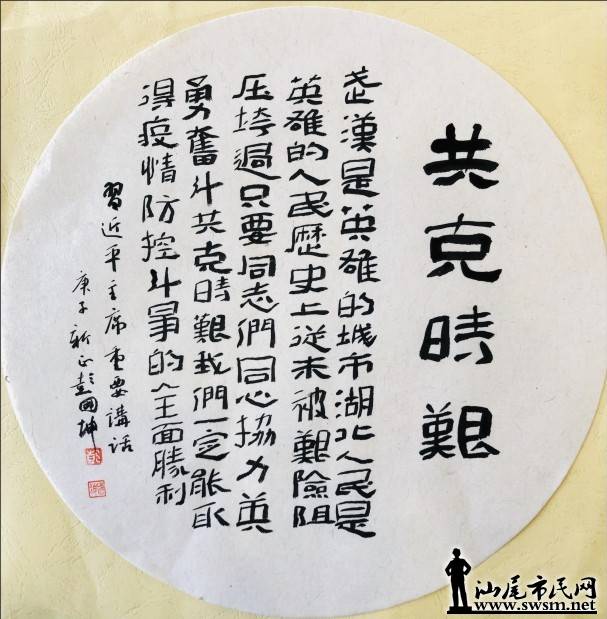 共克時艱
武漢是英雄的城市湖北人民是
英雄的人民歷史上從未被艱險阻
压垮過只要同志們同心協力英
勇奮斗共克時艱我們一定能取
得疫情防控斗爭的全面勝利
習近平主席重要講話
庚子新正彭國坤
汕尾市民网
www.swsm.net